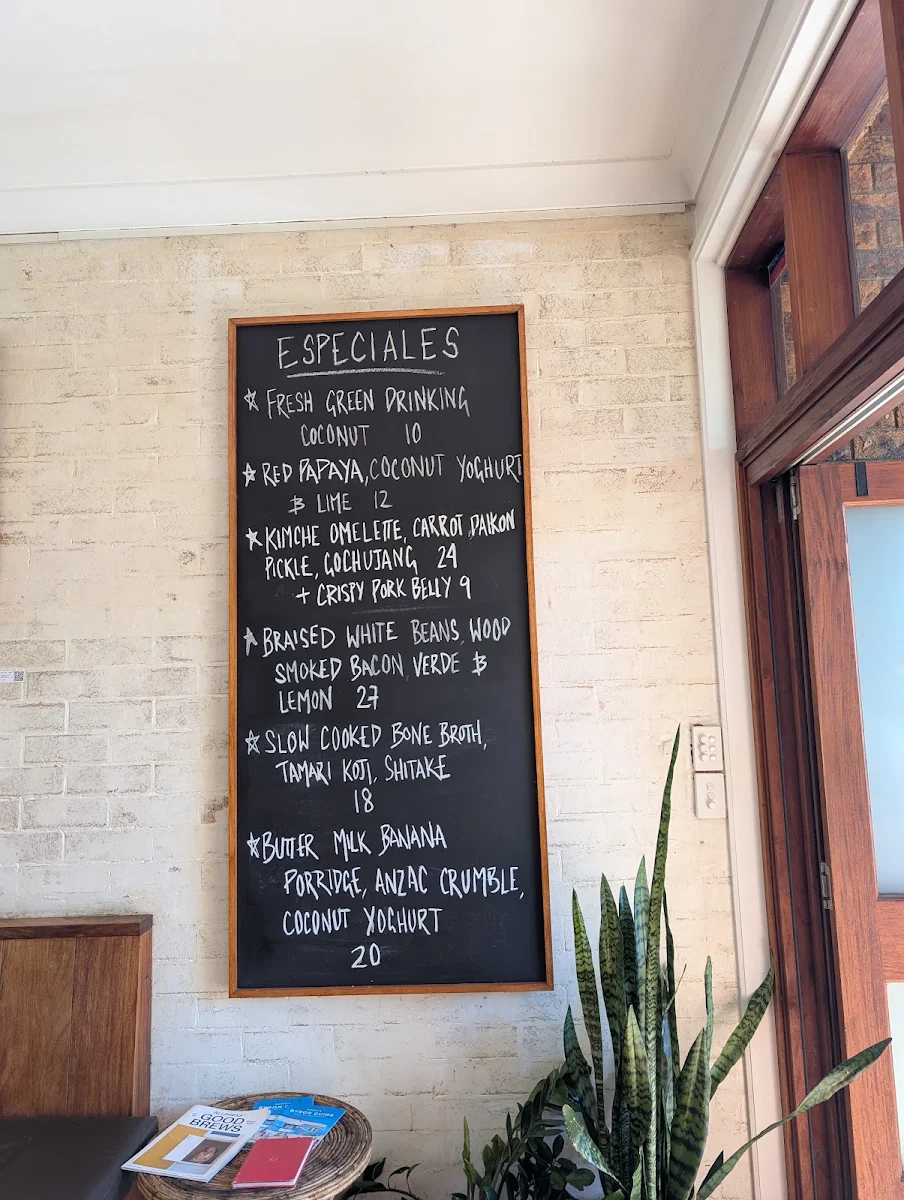 ESPECIALES
☆ FRESH GREEN DRINKING
COCONUT 10
☆ RED PAPAYA, COCONUT YOGHURT
& LIME 12
★ KIMCHE OMELETTE, CARROT, DAIKON
PICKLE, GOCHUJANG 24
+ CRISPY PORK BELLY 9
☆ BRAISED WHITE BEANS, WOOD
SMOKED BACON, VERDE &
LEMON 27
☆ SLOW COOKED BONE BROTH,
TAMARI KOJI, SHITAKE
18
☆ BUTTER MILK BANANA
PORRIDGE, ANZAC CRUMBLE,
COCONUT YOGHURT
20
GOOD
BREWS
BYRON GUIDE